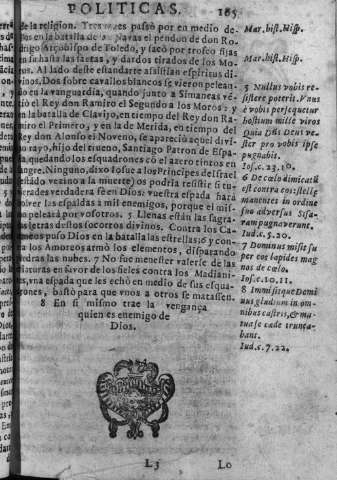 POLITICAS. 165
de la religion. Tres vezes passò por en medio de
los en la batalla de las Navas el pendon de don Ro
drigo Arçobispo de Toledo, y sacò por trofeo fijas
en su hasta las saetas, y dardos tirados de los Mo-
ros. Al lado deste estandarte assistian espiritus di-
vinos. Dos sobre cavallos blancos se vieron pelean-
do en la vanguardia, quando junto a Simancas ve
ciò el Rey don Ramiro el Segundo a los Moros: y
en la batalla de Clavijo, en tiempo del Rey don Ra
miro el Primero, y en la de Merida, en tiempo del
Rey don Alonso el Noveno, se apareciò aquel divi-
no rayo, hijo del trueno, Santiago Patron de Espa-
ña, quedando los esquadrones cõ el azero tintos en
sangre. Ninguno, dixo Iosue a los Principes de Israel
(estando vezino a la muerte) os podrà resistir si tu-
vieredes verdadera fè en Dios: vuestra espada harà
bolver las espaldas a mil enemigos, porque el mis-
mo pelearà por vosotros. 5 Llenas están las sagra-
das letras destos socorros divinos. Contra los Ca-
naneos puso Dios en la batalla las estrellas; 6 y con-
tra los Amoreos armò los elementos, disparando
piedras las nubes. 7 No fue menester valerse de las
criaturas en favor de los fieles contra los Madiani-
tas, vna espada que les echò en medio de sus esqua-
drones, bastò para que vnos a otros se matassen.
8 En si mismo trae la vengança
quien es enemigo de
Dios.
L3 Lo
Mar. hist. Hisp.
Mar. hist. Hisp.
5 Nullus vobis re-
sistere poterit. Vnus
è vobis persequetur
hostium mille viros
Quia Dñs Deus ve-
ster pro vobis ipse
pugnabit.
Ios. c. 23. 10.
6 De cœlo dimicatũ
est contra eos: stellę
manentes in ordine
suo adversus Sisa-
ram pugnaverunt.
Iud. c. 5. 20.
7 Dominus misit su
per eos lapides mag
nos de cœlo.
Ios. c. 10. 11.
8 Immisitque Domi
nus gladium in om-
nibus castris, & mu-
tua se cæde trunca-
bant.
Iud. c. 7. 22.